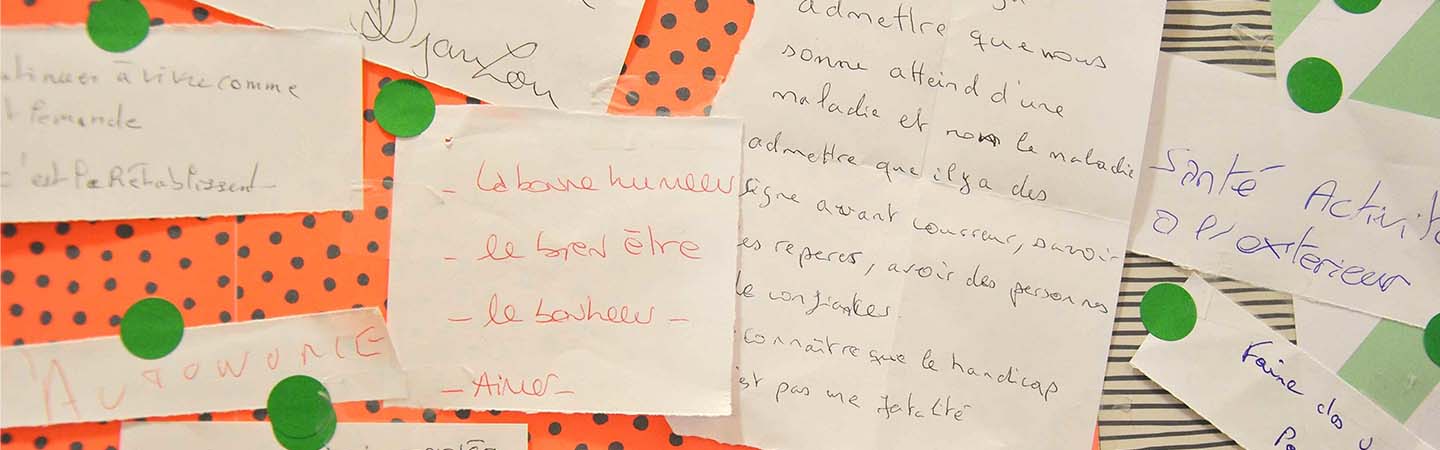 à vivre comme
Demande
c'est le Rétablissent
AUTONOMIE
DjanLou
- la bonne humeur
- le bien être
- le bonheur -
- Aimer -
admettre que nous
somme atteind d'une
maladie et non la maladie
admettre que il y a des
signe avant coureur, savoir
es reperes, avoir des personnes
de confiantes.
connaître que le handicap
est pas une fatalité
Santé Activit
a l'exterieur
Faire des